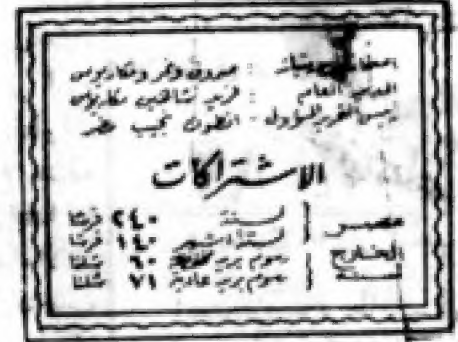 اصحاب الامتياز : صروف ونمر ومكاريوس
المدير العام : فريد شاهين مكاريوس
رئيس التحرير المسؤول - انطون نجيب مطر
الاشتراكات
مصر لسنة ٢٤٠ قرشا
لستة اشهر ١٤٠ قرشا
الخارج رسوم بريد ٦٠ شلنا
لسنة رسوم بريد عادية ٧١ شلنا